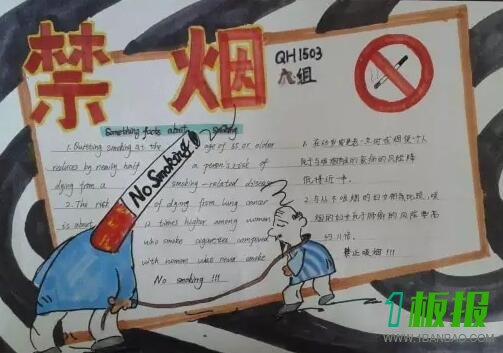 禁 烟
QH1503
九组
Something facts about smoking
1. Quitting smoking at the age of 65 or older
reduces by nearly half a person's risk of
dying from a smoking-related disease
2. The risk of dying from lung cancer
is about times higher among women
who smoke cigarettes compared
with women who never smoke.
No smoking !!!
No Smoking
1. 在65岁或更老一点时戒烟使一个人
死于与吸烟有关的疾病的风险降
低将近一半。
2. 与从不吸烟的妇女相比,吸
烟的妇女死于肺癌的风险要高
约11倍。
禁止吸烟!!!
1板报
WWW.1BANBAO.COM